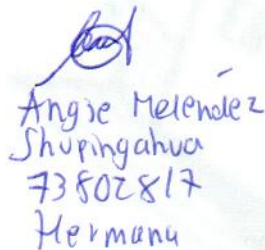 Angie Melendez
Shupingahua
73802817
Hermana